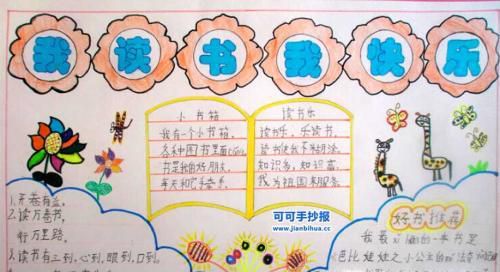 我读书我快乐
小书箱
我有一个小书箱,
各种图书里面
书是我的好朋友,
每天和它手牵手。
读书乐
读书乐,乐读书,
读书使我不糊涂,
知识多,知识富,
我为祖国来服务。
1.开卷有益。
2.读万卷书,
行万里路。
3.读书有三:心到,眼到,口到。
好书推荐
我最
的一本书是
《芭比娃娃之小公主的
可可手抄报
www.jianbihua.cc